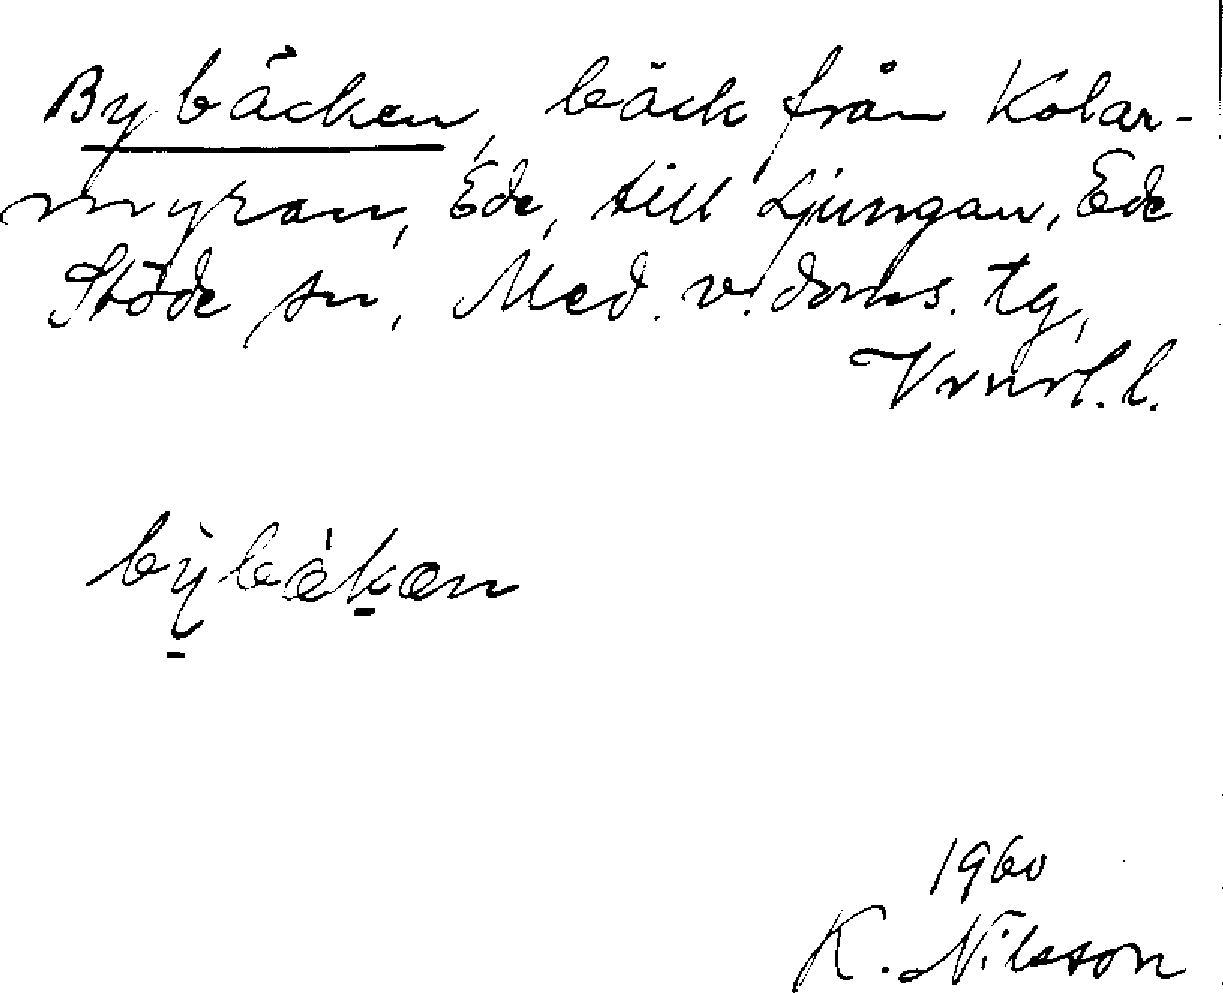 Bybäcken, bäck från Kolar-
myran, Ede, till Ljungan, Ede
Stöde sn, Med. v. doms. tg,
Vnrl. l.
bỳbäkan
1960
K. Nilsson